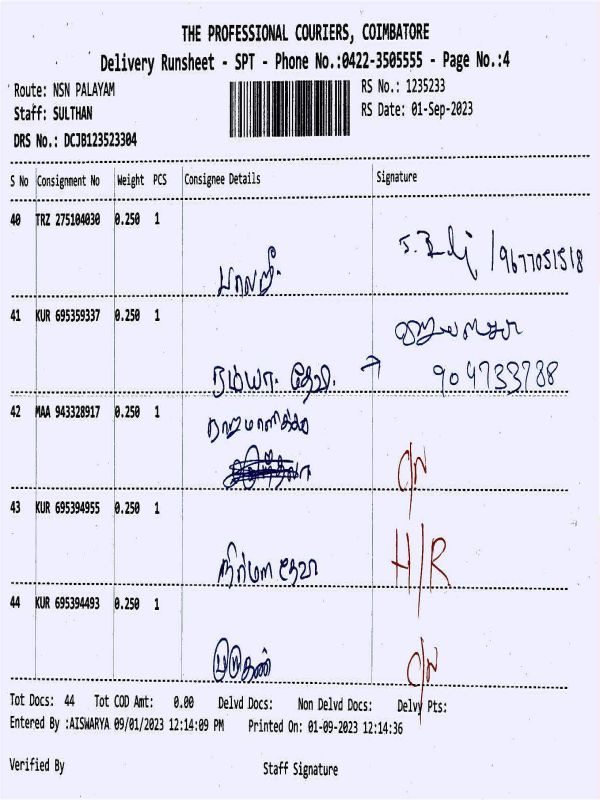 THE PROFESSIONAL COURIERS, COIMBATORE
Delivery Runsheet - SPT - Phone No.:0422-3505555 - Page No.:4
Route: NSN PALAYAM
RS No.: 1235233
Staff: SULTHAN
RS Date: 01-Sep-2023
DRS No.: DCJB123523304
S No Consignment No Weight PCS Consignee Details Signature
40 TRZ 275104030 0.250 1
பாலாஜி
9677051518
41 KUR 695359337 0.250 1
ரம்யா தேவி →
904733788
42 MAA 943328917 0.250 1
ராஜமாணிக்க
C/N
43 KUR 695394955 0.250 1
நிர்மலா தேவி
H/R
44 KUR 695394493 0.250 1
முருகன்
C/N
Tot Docs: 44 Tot COD Amt: 0.00 Delvd Docs: Non Delvd Docs: Delvy Pts:
Entered By :AISWARYA 09/01/2023 12:14:09 PM Printed On: 01-09-2023 12:14:36
Verified By Staff Signature